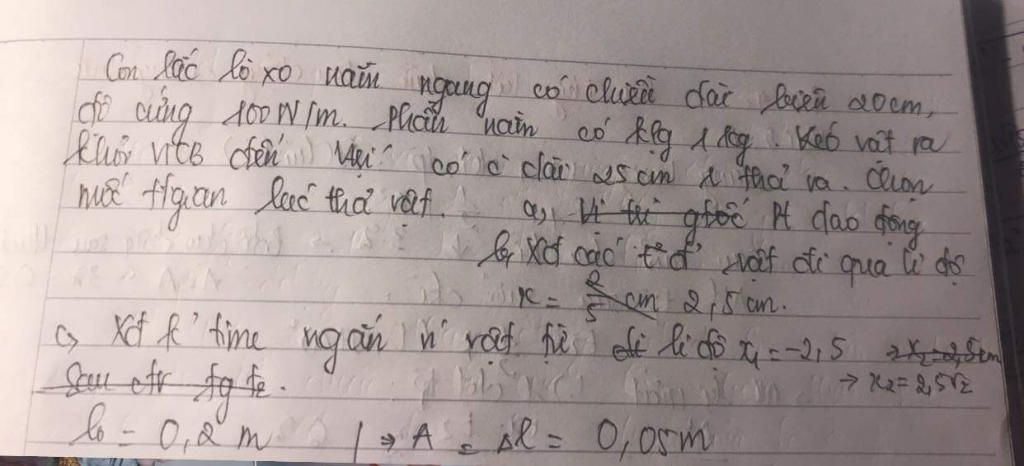 Con lắc lò xo nằm ngang có chiều dài 20cm,
độ cứng 100N/m. Phần nằm có klg 1kg. Kéo vật ra
khỏi VTCB đến vị trí có c dài 25cm & thả ra. Chọn
mốc tgian lúc thả vật. a, Vị trí gốc Pt dao động
b, Xđ các t.đ vật đi qua li độ
x = 2/5 cm 2,5 cm.
c, Xđ k time ngắn n' vật từ li độ x₁ = -2,5 → x₂ = 2,5cm
→ x₂ = 2,5√2
l₀ = 0,2 m | ⇒ A = Δl = 0,05m